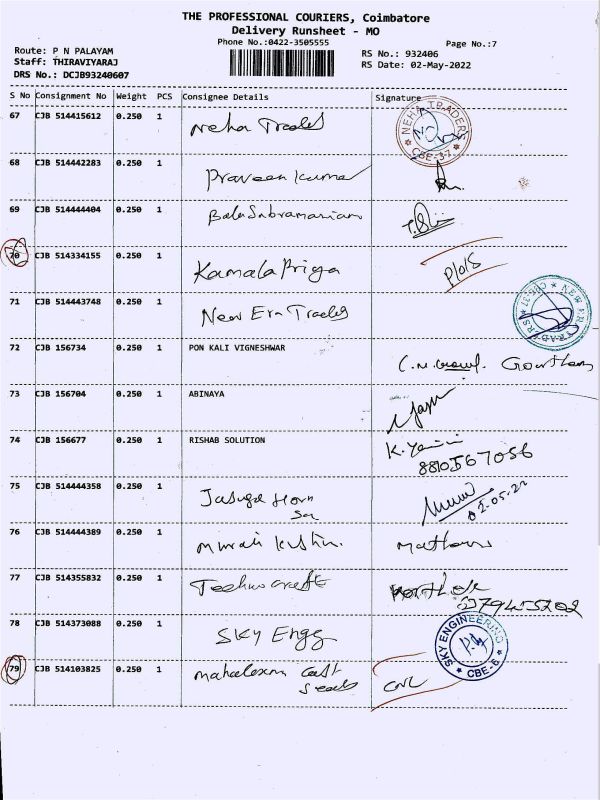 THE PROFESSIONAL COURIERS, Coimbatore
Delivery Runsheet - MO
Phone No.:0422-3505555
Page No.:7
Route: P N PALAYAM
Staff: THIRAVIYARAJ
DRS No.: DCJB93240607
RS No.: 932406
RS Date: 02-May-2022
S No Consignment No Weight PCS Consignee Details Signature
67 CJB 514415612 0.250 1 Neha Trades
NEHA TRADERS
CBE-37
68 CJB 514442283 0.250 1 Praveen Kumar
69 CJB 514444404 0.250 1 Bala Subramaniam
70 CJB 514334155 0.250 1 Kamala Priya
71 CJB 514443748 0.250 1 New Era Trades
NEW ERA TRADERS
CBE-37
72 CJB 156734 0.250 1 PON KALI VIGNESHWAR Goutham
73 CJB 156704 0.250 1 ABINAYA
74 CJB 156677 0.250 1 RISHAB SOLUTION K. Yamini
8810567056
75 CJB 514444358 0.250 1
02.05.22
76 CJB 514444389 0.250 1
77 CJB 514355832 0.250 1 Techno craft
78 CJB 514373088 0.250 1 SKY Engg
SKY ENGINEERING
CBE-6
79 CJB 514103825 0.250 1 CNL